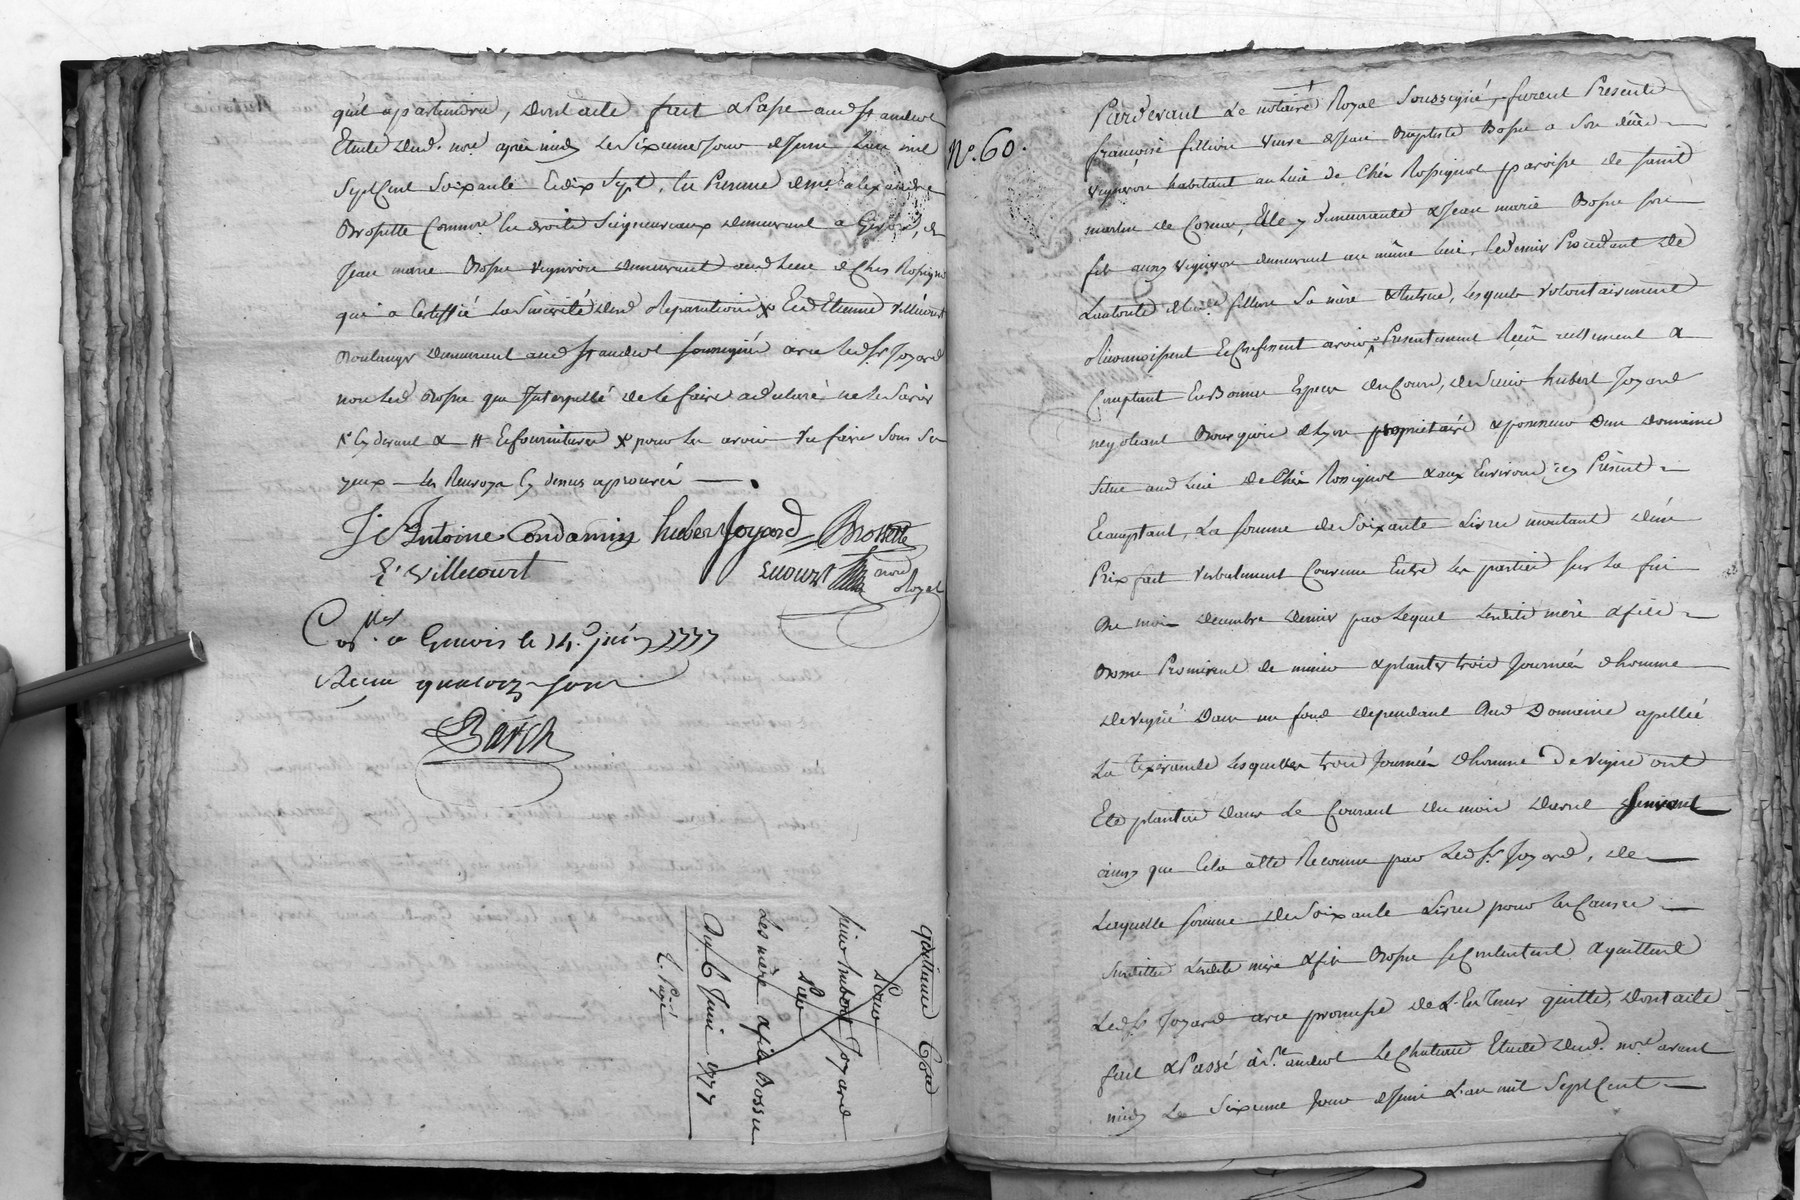 qu'il apartiendra, dont acte fait & Passé aud St andeol
Etude dud. nore. après midy le Sixieme jour de juin L'an mil
Sept Cent Soixante et dix Sept, En Presence de mre alexandre
Brossette Commre. En droits Seigneuriaux demeurant a Givors, &
Jean marie Bossu vigneron demeurant aud lieu de Cher Rossignol
qui a Certiffié La Sincérité des Reparations x Et d'Etienne villecourt
Boulanger demeurant aud St andeol soussignés avec led Sr Joyard
non led Bossu que Interpellé de le faire a declaré ne le Savoir
Cy devant & # Et fournitures x pour les avoir vu faire Sous Ses
yeux — Les Renvoys Cy dessus approuvés —
Je Antoine Condamin hubert Joyard Brossette
E. villecourt nore Royal
Collé. a Givors le 14. juin 1777
Recu quatorze sous
Barch
quittance
pour
Sieur hubert Joyard
par
Les mère & fils Bossu
Du 6 Juin 1777
No. 60.
Pardevant Le notaire Royal Soussigné, furent Présents
françoise fillion veuve de Jean Baptiste Bossu a Son décès
vigneron habitant au lieu de Cher Rossignol paroisse de saint
martin de Cornas, Elle y demeurante & Jean marie Bossu son
fils aussy vigneron demeurant au même lieu, Ledernier Procedant de
L'autorité de lad. fillion Sa mère & tutrice, lesquels volontairement
Reconnoissent Et Confessent avoir Presentement Reçu réellement &
Comptant En Bonnes Espèces du Cours, de Sieur hubert Joyard
negotiant Bourgeois de Lyon propriétaire & possesseur d'un domaine
Situé aud lieu de Cher Rossignol & aux Environs icy Présent
Et acceptant, La somme de Soixante Livres montant d'un
Prix fait verbalement Convenu Entre les parties sur la fin
du mois decembre dernier par lequel lesdits mère & fils
Bossu Promirent de miner & planter trois Journées d'homme
de vigne dans un fond dependant dud Domaine apellée
La Texerande lesquelles trois Journées d'homme De vigne ont
Eté plantées dans Le Courant du mois d'avril suivant
ainsy que Cela a été Reconnu par led Sr Joyard, de
Laquelle somme de Soixante Livres pour les Causes
Susdittes Lesdits mère & fils Bossu se Contentent & quittent
led Sr Joyard avec promesse de L'En tenir quitte, dont acte
fait & Passé à St. andeol Le Chateau Etude dud. nore avant
midy Le Sixieme Jour de juin L'an mil Sept Cent